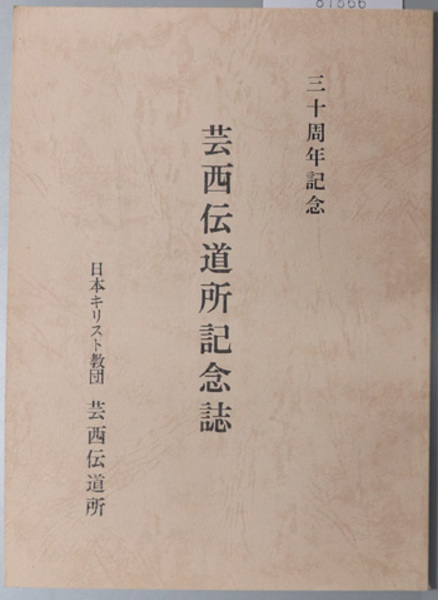 三十周年記念
芸西伝道所記念誌
日本キリスト教団 芸西伝道所